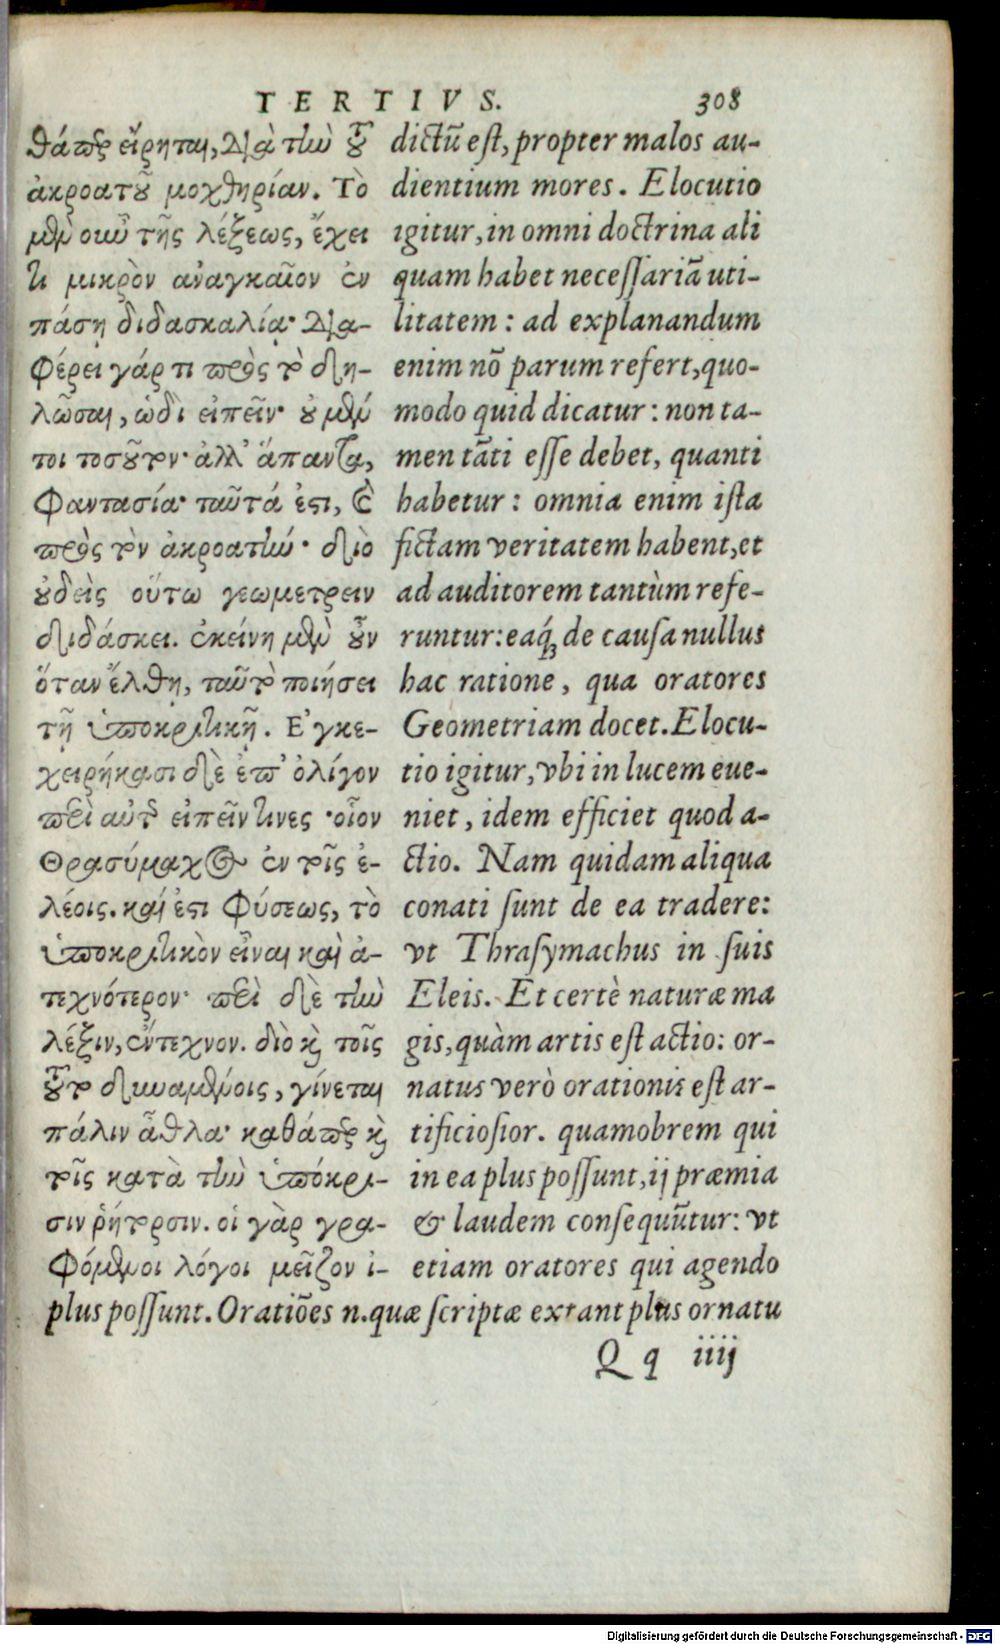 TERTIVS. 308
θάπερ εἴρηται, διὰ τὴν τοῦ
ἀκροατοῦ μοχθηρίαν. Τὸ
μὲν οὖν τῆς λέξεως, ἔχει
τι μικρὸν ἀναγκαῖον ἐν
πάσῃ διδασκαλίᾳ· δια-
φέρει γάρ τι πρὸς τὸ δη-
λῶσαι, ὡδὶ εἰπεῖν· οὐ μέν
τοι τοσοῦτον· ἀλλ' ἅπαντα,
φαντασία· ταῦτά ἐστι, καὶ
πρὸς τὸν ἀκροατήν· διὸ
οὐδεὶς οὕτω γεωμετρειν
διδάσκει. ἐκείνη μὲν οὖν
ὅταν ἔλθῃ, ταὐτὸ ποιήσει
τῇ ὑποκριτικῇ. Ἐγκε-
χειρήκασι δὲ ἐπ' ὀλίγον
περὶ αὐτῆς εἰπεῖν τινες· οἷον
Θρασύμαχος ἐν τοῖς ἐ-
λέοις. καί ἐστι φύσεως, τὸ
ὑποκριτικὸν εἶναι καὶ ἀ-
τεχνότερον· περὶ δὲ τὴν
λέξιν, ἔντεχνον. διὸ καὶ τοῖς
τοῦτο δυναμένοις, γίνεται
πάλιν ἆθλα· καθάπερ καὶ
τοῖς κατὰ τὴν ὑπόκρι-
σιν ῥήτορσιν. οἱ γὰρ γρα-
φόμενοι λόγοι μεῖζον ἰ-
dictũ est, propter malos au-
dientium mores. Elocutio
igitur, in omni doctrina ali
quam habet necessariã uti-
litatem: ad explanandum
enim nõ parum refert, quo-
modo quid dicatur: non ta-
men tãti esse debet, quanti
habetur: omnia enim ista
fictam veritatem habent, et
ad auditorem tantùm refe-
runtur: eaq́; de causa nullus
hac ratione, qua oratores
Geometriam docet. Elocu-
tio igitur, vbi in lucem eue-
niet, idem efficiet quod a-
ctio. Nam quidam aliqua
conati sunt de ea tradere:
vt Thrasymachus in suis
Eleis. Et certè naturæ ma
gis, quàm artis est actio: or-
natus verò orationis est ar-
tificiosior. quamobrem qui
in ea plus possunt, ij præmia
& laudem consequũtur: vt
etiam oratores qui agendo
plus possunt. Oratiões n. quæ scriptæ extant plus ornatu
Qq iiij
Digitalisierung gefördert durch die Deutsche Forschungsgemeinschaft - DFG